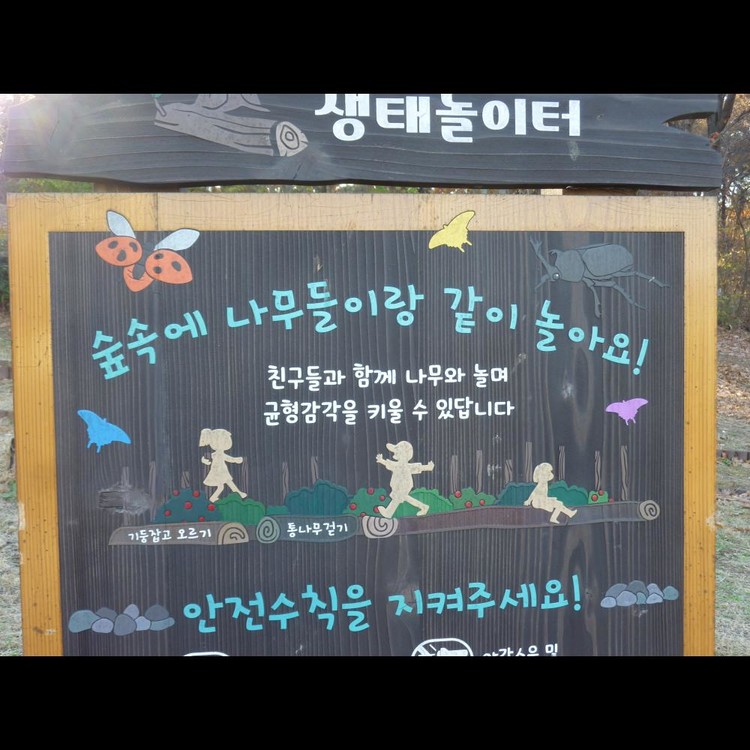 생태놀이터
숲속에 나무들이랑 같이 놀아요!
친구들과 함께 나무와 놀며
균형감각을 키울 수 있답니다
기둥잡고 오르기
통나무걷기
안전수칙을 지켜주세요!